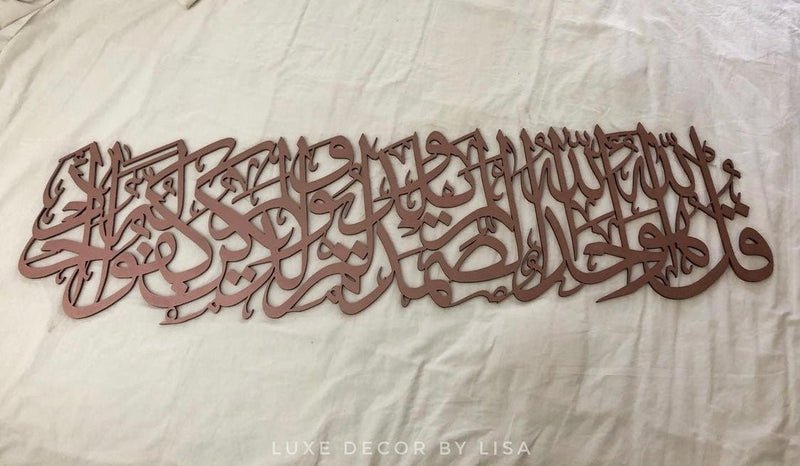 قل هو الله أحد الله الصمد لم يلد ولم يولد ولم يكن له كفوا أحد
LUXE DECOR BY LISA